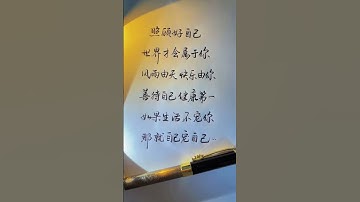 照顾好自己
世界才会属于你
风雨由天 快乐由你
善待自己 健康第一
如果生活不宠你
那就自己宠自己…